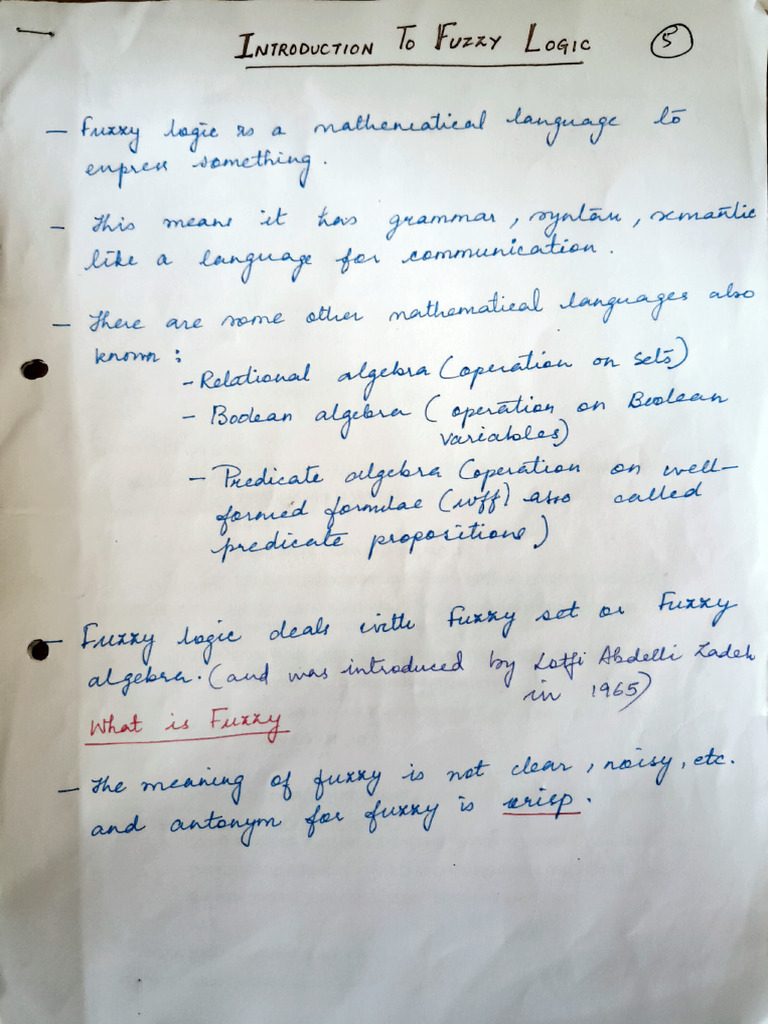 INTRODUCTION TO FUZZY LOGIC 5
- Fuzzy logic is a mathematical language to
express something.
- This means it has grammar, syntax, semantic
like a language for communication.
- There are some other mathematical languages also
known :
- Relational algebra (operation on sets)
- Boolean algebra (operation on Boolean
variables)
- Predicate algebra (operation on well-
formed formulae (wff) also called
predicate propositions)
- Fuzzy logic deals with Fuzzy set or Fuzzy
algebra. (and was introduced by Lotfi Abdelli Zadeh
in 1965)
What is Fuzzy
- The meaning of fuzzy is not clear, noisy, etc.
and antonym for fuzzy is crisp.